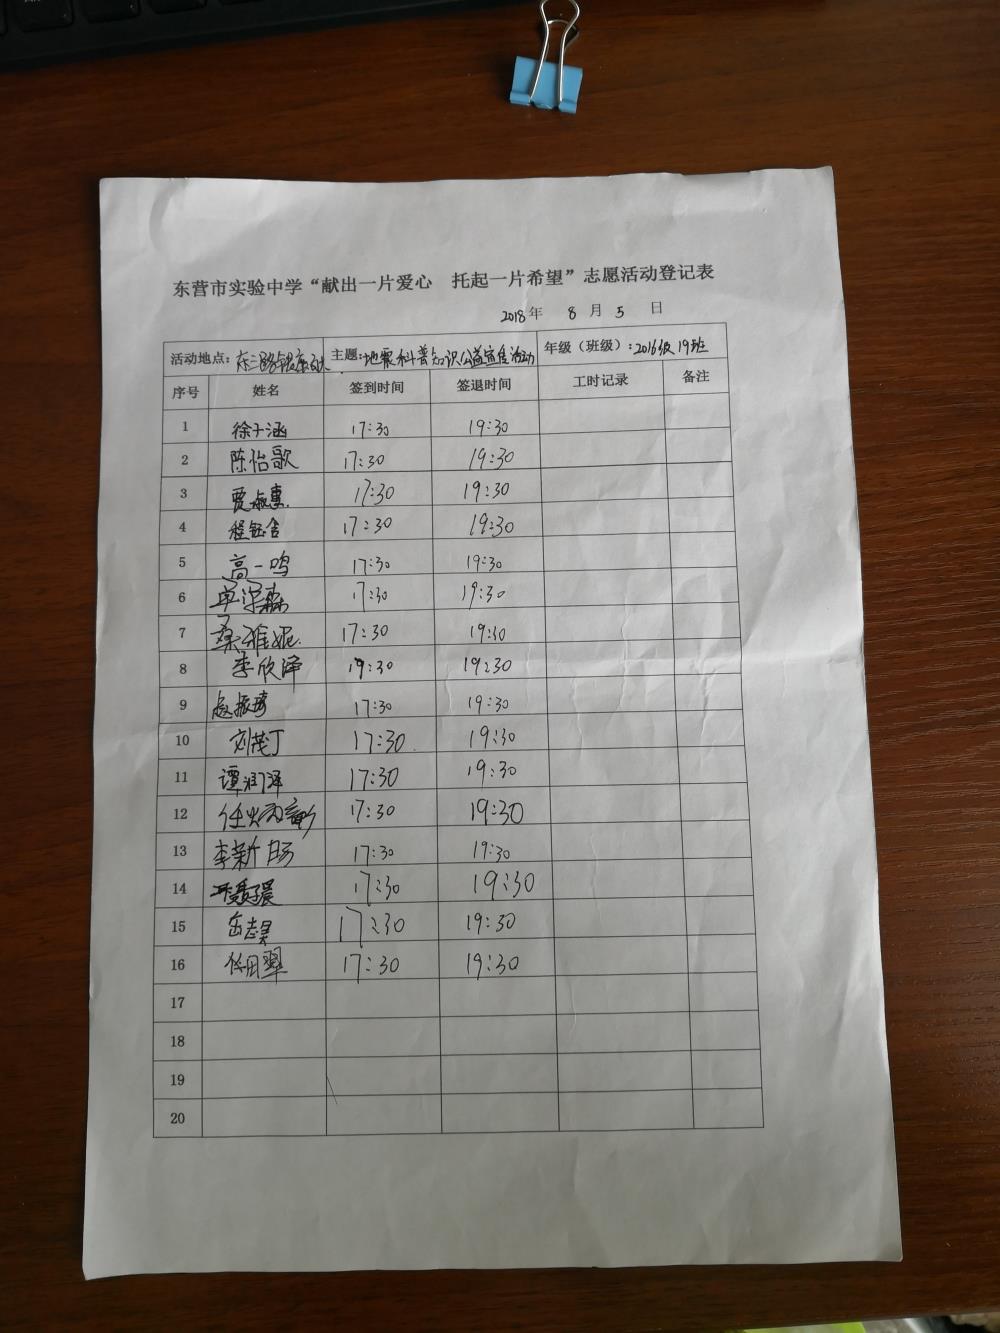 东营市实验中学“献出一片爱心 托起一片希望”志愿活动登记表
2018年 8 月 5 日
活动地点： 主题：地震科普知识公益宣传活动 年级（班级）：2016级19班
序号 姓名 签到时间 签退时间 工时记录 备注
1 徐子涵 17:30 19:30
2 陈怡歌 17:30 19:30
3 贾淑惠 17:30 19:30
4 程钰含 17:30 19:30
5 高一鸣 17:30 19:30
6 17:30 19:30
7 桑雅妮 17:30 19:30
8 李欣泽 19:30 19:30
9 赵振琦 17:30 19:30
10 刘茂丁 17:30 19:30
11 谭润泽 17:30 19:30
12 17:30 19:30
13 李新旸 17:30 19:30
14 17:30 19:30
15 17:30 19:30
16 17:30 19:30
17
18
19
20